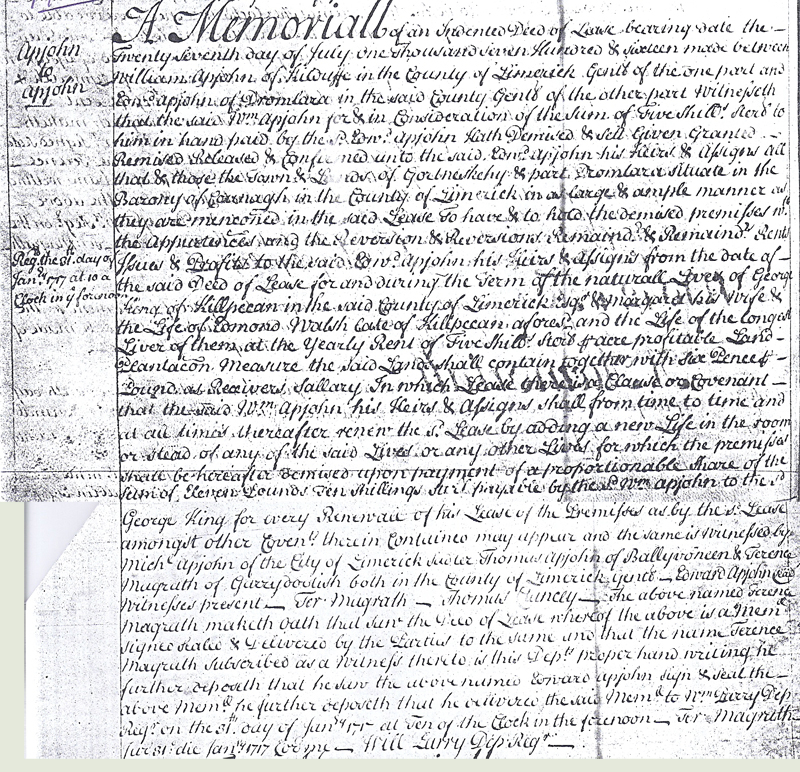 Apjohn
&
Apjohn
A Memoriall of an Indented Deed of Lease bearing date the
Twenty Seventh day of July one thousand seven Hundred & sixteen made between
William Apjohn of Kilduffe in the County of Limerick Gent of the one part and
Edwd Apjohn of Dromlara in the said County Gent of the other part Witnesseth
that the said Wm Apjohn for & in Consideration of the sum of Five Shill Sterl to
him in hand paid by the sd Edwd Apjohn Hath Demised & Sett Given Granted
Remised Released & Confirmed unto the said Edwd Apjohn his Heirs & Assigns all
that & those the Town & Lands of & part Dromlara situate in the
Barony of in the County of Limerick in as large & ample manner as
they are menconed in the said Lease To have & to hold the demised premisses wth
the Appurtences and the Reversion & Reversions Remaindr & Remaindrs Rents
Issues & Profitts to the said Edwd Apjohn his Heirs & Assigns from the date of
Regd the day of
Janry 1717 at 10 a
Clock in ye forenoon
the said Deed of Lease for and during the Term of the naturall Lives of George
King of Killpecan in the said County of Limerick Esqr & Margaret his Wife &
the Life of Edmond Walsh late of Killpecan aforesd and the Life of the longest
Liver of them at the Yearly Rent of Five Shill Sterl acre profitable Land
Plantacon Measure the said Lands shall contain together with Six Pence
Pound as Receivers Sallary In which Lease there is a Clause or Covenant
that the said Wm Apjohn his Heirs & Assigns shall from time to time and
at all times thereafter renew the sd Lease by adding a new Life in the room
or stead of any of the said Lives or any other Lives for which the premisses
shall be hereafter demised upon payment of a proportionable share of the
sum of Eleven Pounds Ten Shillings payable by the sd Wm Apjohn to the sd
George King for every Renewall of his Lease of the Premisses as by the sd Lease
amongst other Covents therein Contained may appear and the same is Witnessed by
Michl Apjohn of the City of Limerick Thomas Apjohn of Ballyvoneen & Terence
Magrath of Garrydoolish both in the County of Limerick Gents — Edward Apjohn
Witnesses present — Ter Magrath — Thomas — The above named Terence
Magrath maketh Oath that saw the Deed of Lease whereof the above is a Meml
signed sealed & Delivered by the Parties to the same and that the name Terence
Magrath subscribed as a Witness thereto is this Depts proper hand writing he
further deposeth that he saw the above named Edward Apjohn sign & seal the
above Meml & he further deposeth that he delivered the said Meml to Wm Parry Dep
Regr on the day of Janry at Ten of the Clock in the forenoon — Ter Magrath
die Janry 1717 Cor me — Will Parry Dep Regr —